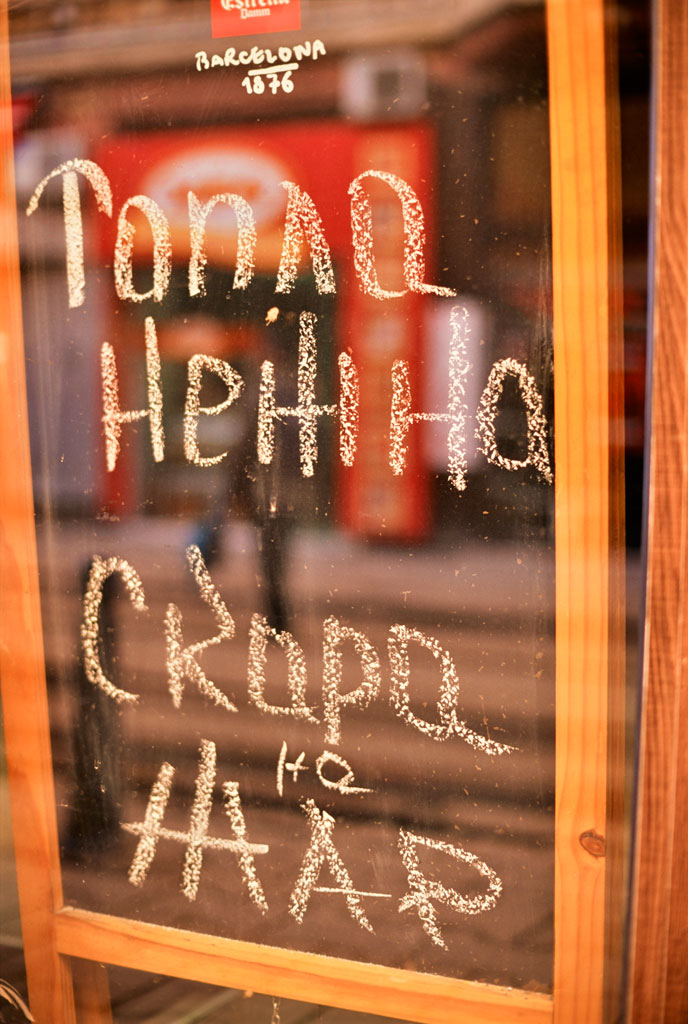 Estrella
Damm
BARCELONA
1876
Топла
Нежна
Скара
на
ЖАР